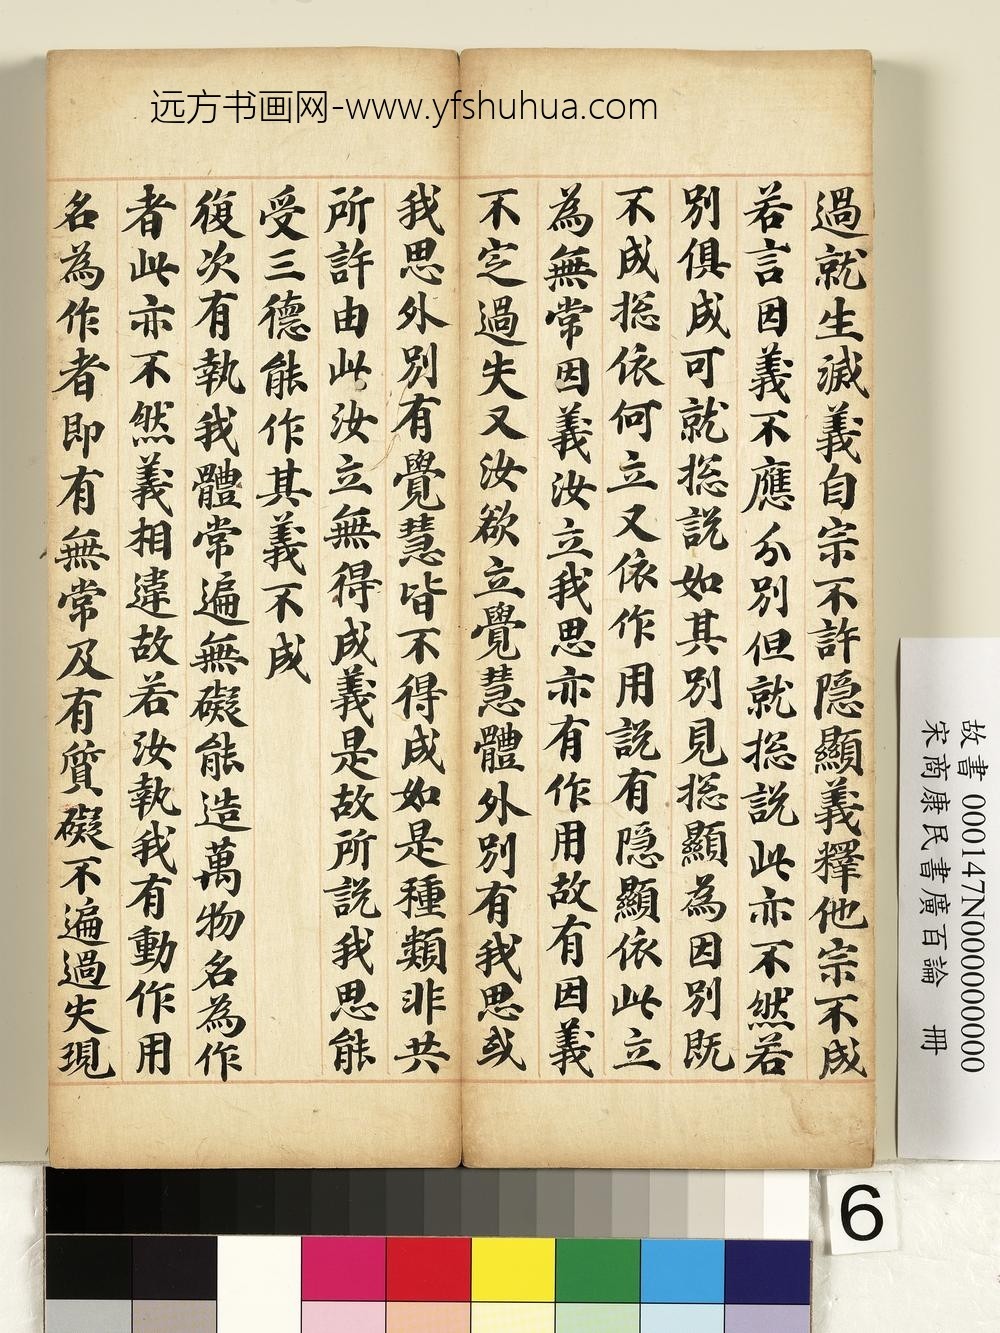 远方书画网-www.yfshuhua.com
過就生滅義自宗不許隱顯義釋他宗不成
若言因義不應分別但就捴說此亦不然若
別俱成可就捴說如其別見捴顯為因別既
不成捴依何立又依作用說有隱顯依此立
為無常因義汝立我思亦有作用故有因義
不定過失又汝欲立覺慧體外別有我思或
我思外別有覺慧皆不得成如是種類非共
所許由此汝立無得成義是故所說我思能
受三德能作其義不成
復次有執我體常遍無礙能造萬物名為作
者此亦不然義相違故若汝執我有動作用
名為作者即有無常及有質礙不遍過失現
故書 000147N000000000
宋商康民書廣百論 冊
6